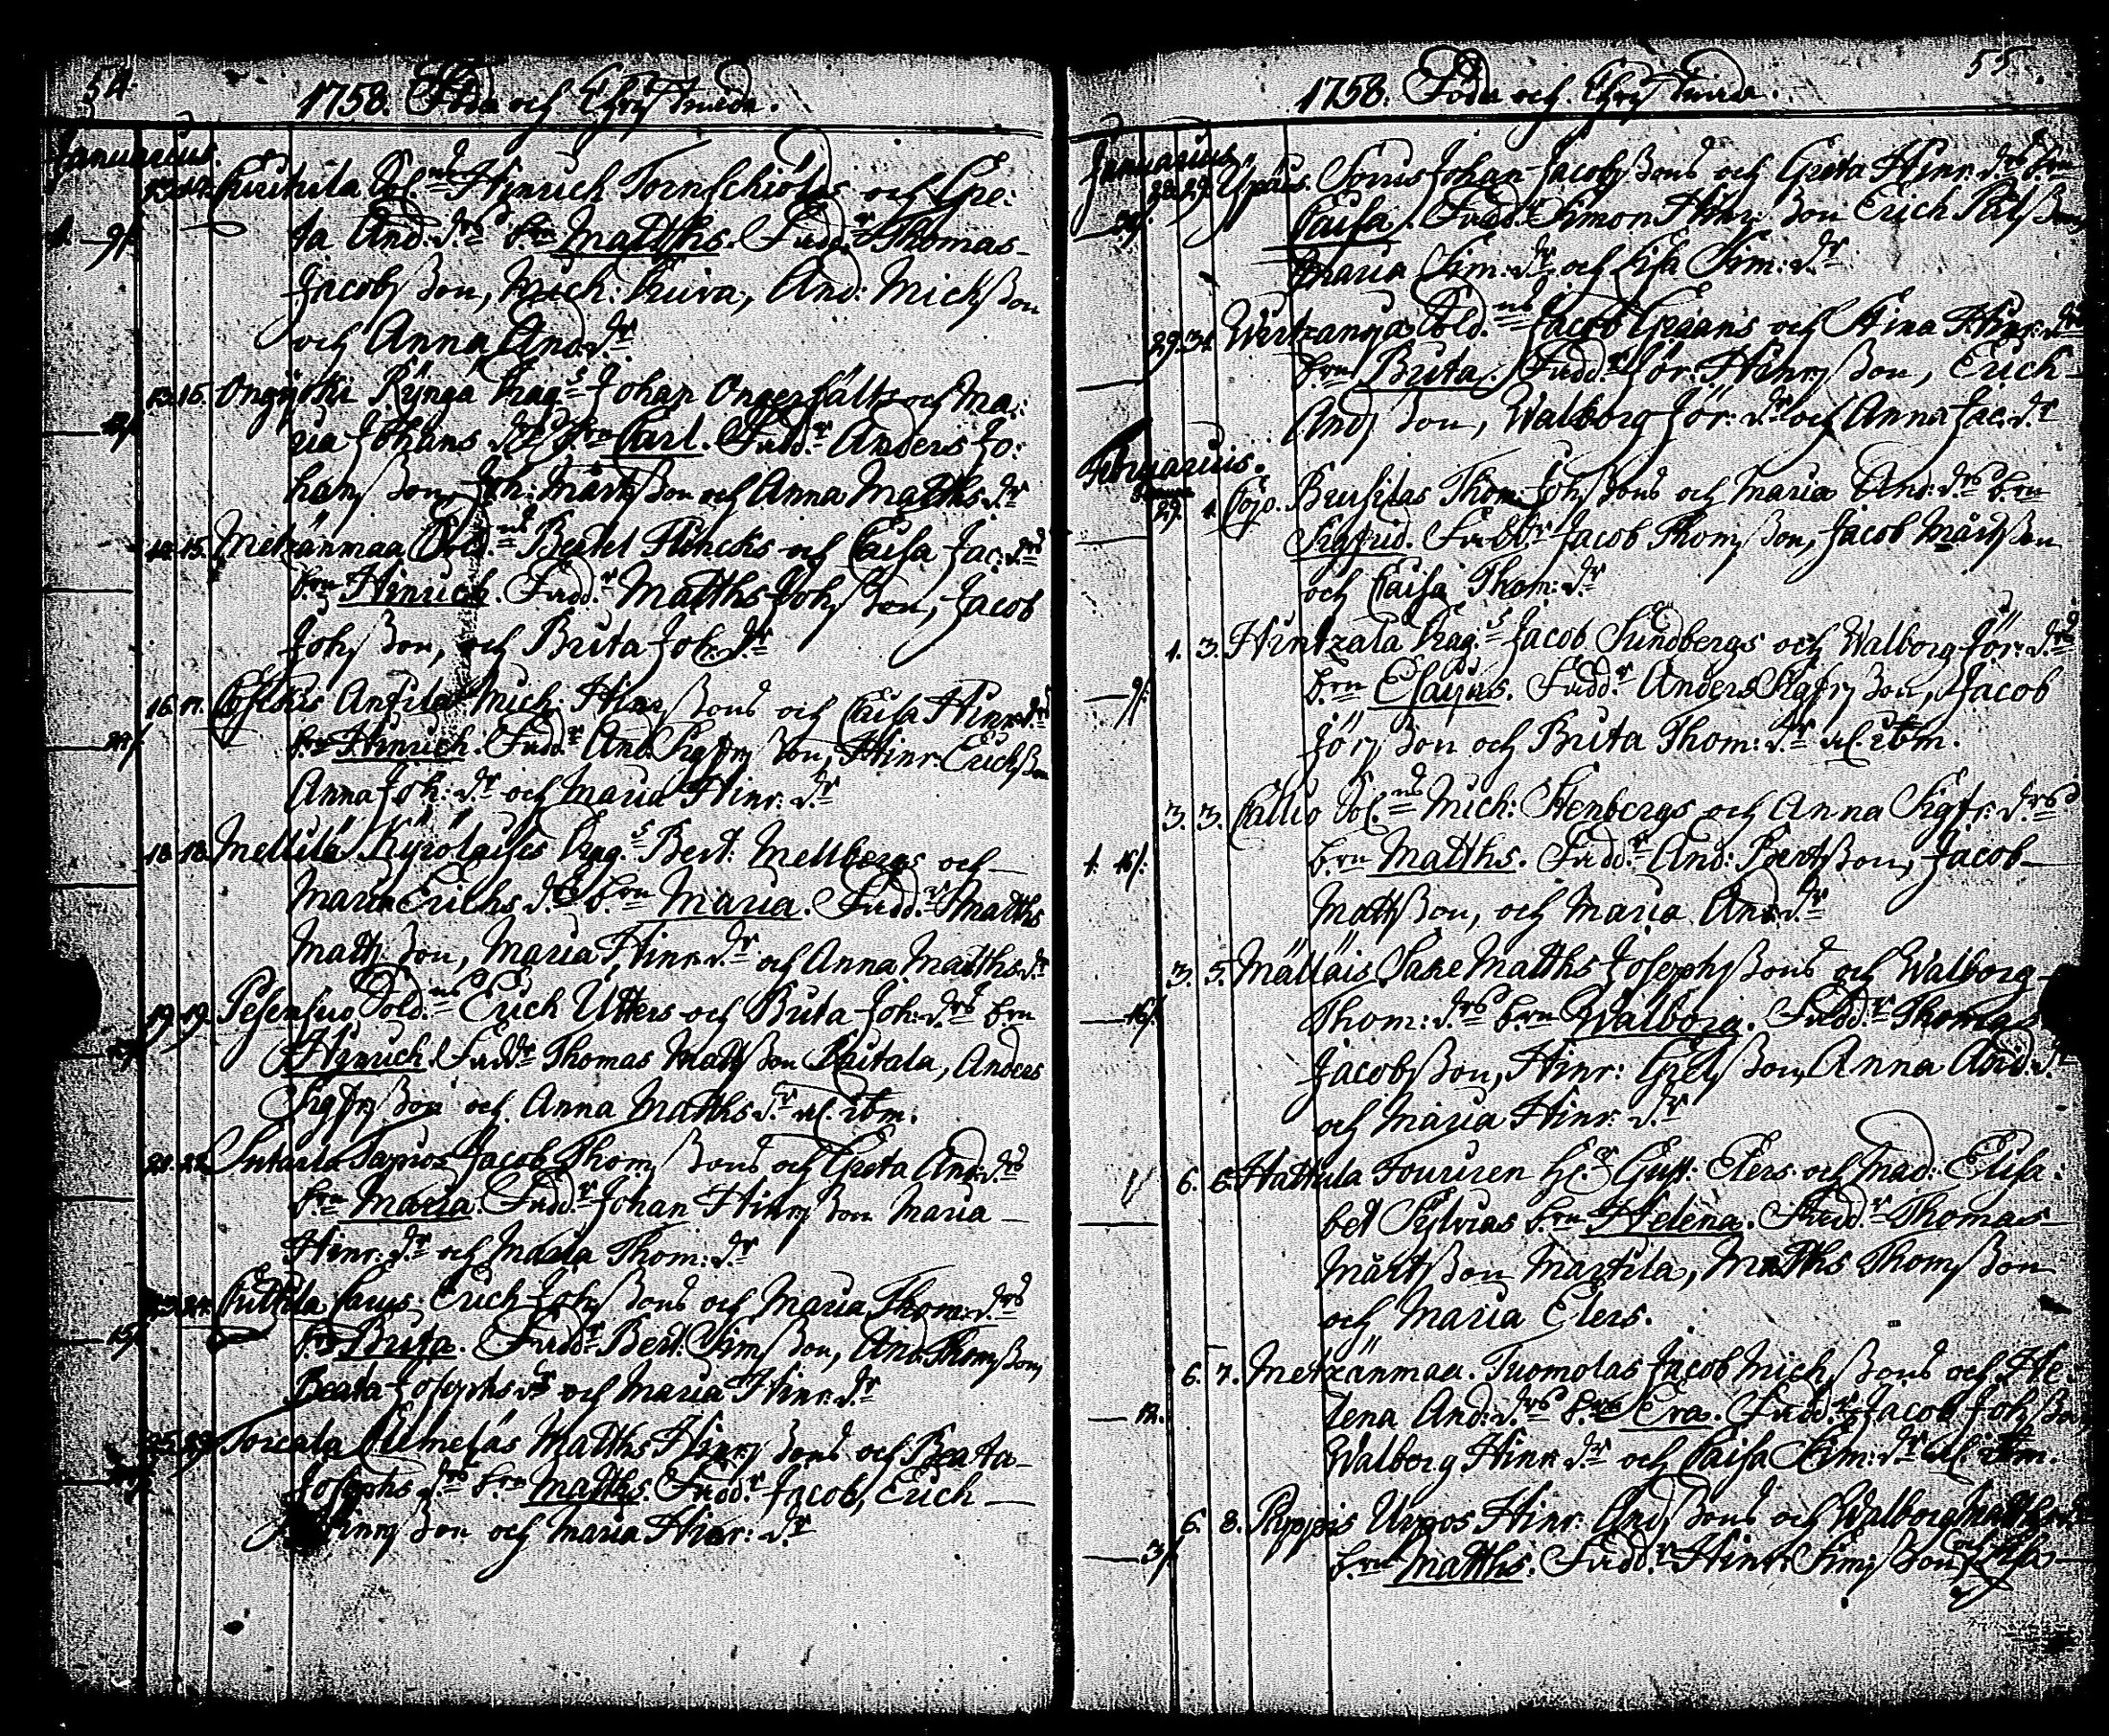 54.
1758. Föda och Christnade.
Januarius.
13. 14. Curikila Sol.ns Hinrich Tornschiölds och Gre:
1. 9/. ta And: d:rs b:rn Matths. Fadd.r Thomas
Jacobsson, Mich: Kura, And: Micksson
och Anna And: d:r
13. 15. Ongijoki Rynga Drag.s Johan Ongerfälts och Ma:
ria Johans d:rs b:rn Carl. Fadd.r Anders Jo:
hansson, Joh: Mårtsson och Anna Matths d:r
14. 15. Metzänmaa Sold.ns Bertel Flincks och Caisa Jac: d:rs
b:rn Hinrich. Fadd.r Matths Johsson, Jacob
Johsson, och Brita Joh: d:r
16. 17. Anfila Mich: Hinrssons och Caisa Hinr: d:rs
b:rn Hinrich. Fadd.r And: Sigfrsson, Hinr: Erichsson
Anna Joh: d:r och Maria Hinr: d:r
18. 18. Mellilä Kyrölaises Drag.s Bert: Mellbergs och
Maria Erichs d:rs b:rn Maria. Fadd.r Matths
Mattsson, Maria Hinr: d:r och Anna Matths d:r
19. 19. Pesensuo Sold.ns Erich Utters och Brita Joh: d:rs b:rn
Hinrich. Fadd.r Thomas Mattsson Lautala, Anders
Sigfrsson och Anna Matths d:r ux. ibm.
21. 22. Tapios Jacob Thomssons och Greta And: d:rs
b:rn Maria. Fadd.r Johan Hinrsson Maria
Hinr: d:r och Maria Thom: d:r
23. 24. Cuttila Erich Johssons och Maria Thom: d:rs
15/. b:rn Brita. Fadd.r Bert: Simsson, And: Thomsson
Beata Josephs d:r och Maria Hinr: d:r
Torcala Matths Hinrssons och Beata
Josephs d:rs b:rn Matths. Fadd.r Jacob, Erich
Hinrsson och Maria Hinr: d:r
55.
1758. Föda och Christnade.
Januarius.
28. 29. Johan Jacobssons och Greta Hinr: d:rs b:rn
Caisa. Fadd.r Simon Hinr:sson Erich Pålsson
Maria Sim: d:r och Lisa Sim: d:r
29. 31. Wirtzanoja Sold.ns Jacob Graans och Stina Hinr: d:rs
b:rn Brita. Fadd.r Jör: Hinrsson, Erich
Andsson, Walborg Jör: d:r och Anna Jac: d:r
Februarius.
29. 1. Cojo. Thom: Johssons och Maria And: d:rs b:rn
Sigfrid. Fadd.r Jacob Thomsson, Jacob Mårtsson
och Caisa Thom: d:r
1. 3. Hintzala Drag.s Jacob Sundbergs och Walborg Jör: d:rs
9/. b:rn Esaijas. Fadd.r Anders Sigfrsson, Jacob
Jörsson och Brita Thom: d:r ux. ibm.
3. 3. Callio Sol.ns Mich: Stenbergs och Anna Sigfr: d:rs
b:rn Matths. Fadd.r And: Bertsson, Jacob
Mattsson, och Maria And: d:r
3. 5. Mälläis Sake Matths Josephssons och Walborg
16/. Thom: d:rs b:rn Walborg. Fadd.r Thomas
Jacobsson, Hinr: Grelsson, Anna And: d:r
och Maria Hinr: d:r
6. 6. Hattula Fouriren H:r Gust: Elers och Mad: Elisa:
bet Sylvias b:rn Helena. Fadd.r Thomas
Mårtsson Martila, Matths Thomsson
och Maria Elers.
6. 7. Metzänmaa. Tuomolas Jacob Michssons och He:
12. lena And: d:rs b:rn Eva. Fadd.r Jacob Johsson
Walborg Hinr: d:r och Caisa Sim: d:r ux. ibm.
6. 8. Ryppis Uvpos Hinr: Andssons och Walborg Matths d:rs
3/. b:rn Matths. Fadd.r Hinr: Simsson, och Lisa